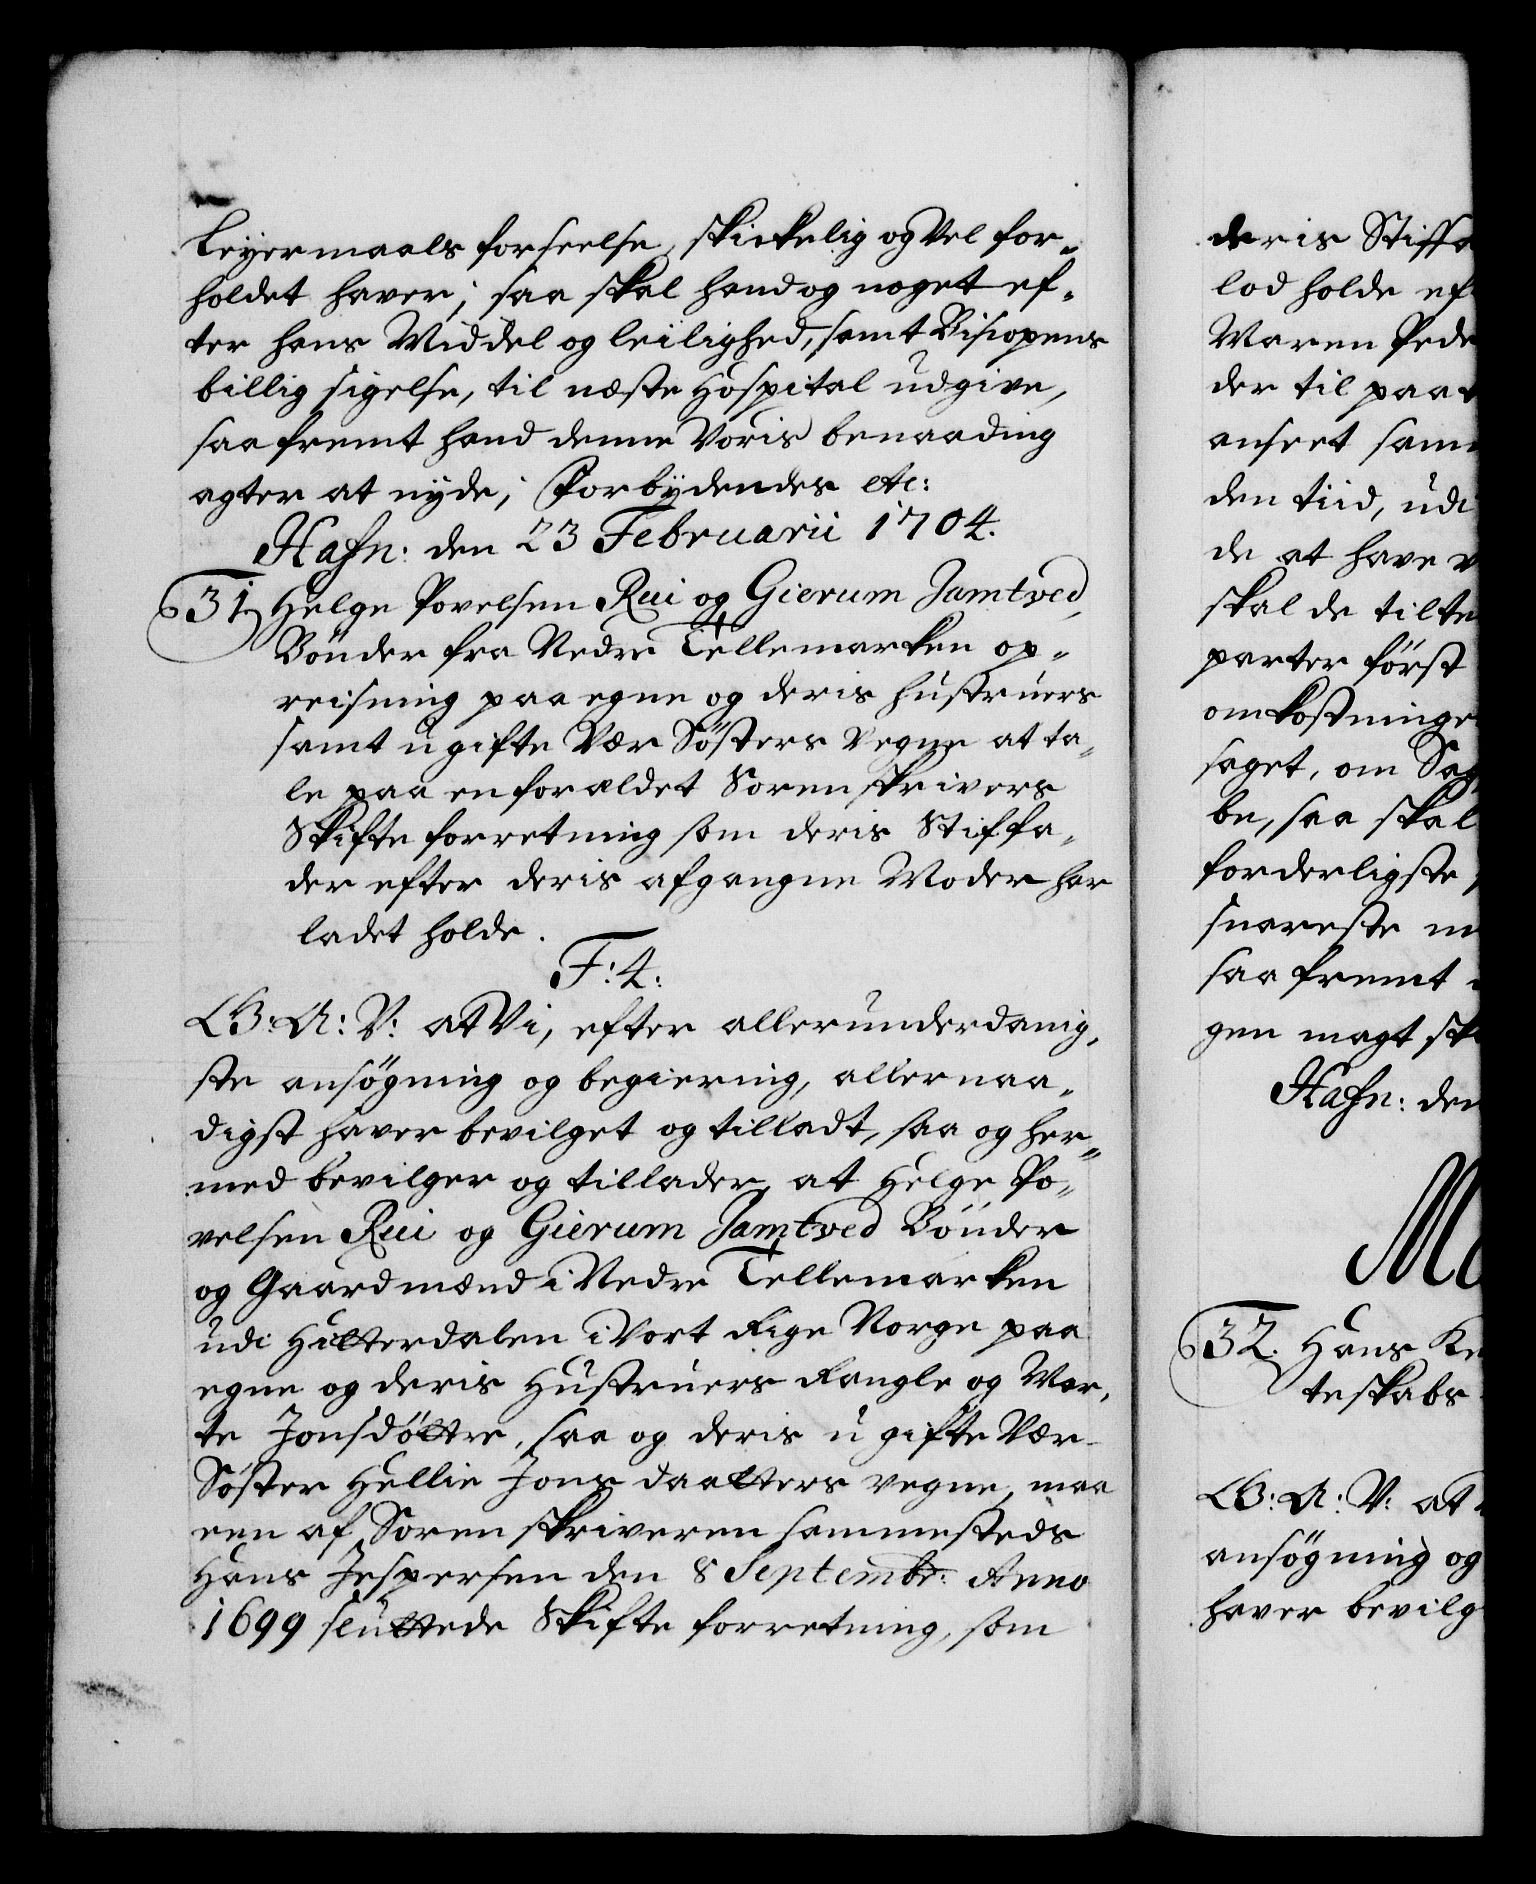 Leyermaals forseelse, skickelig og Vel for-
holdet haver; saa skal hand og noget ef-
ter hans Middel og leilighed, samt Bispens
billig sigelse, til neste Hospital udgive,
saa fremt hand denne Voris benaading
agter at nyde; Forbydendes etc:
Hafn: den 23 Februarii 1704.
31 Helge Povelsen Rui og Gierum Jamtved,
Bönder fra Nedre Tellemarken op-
reisning paa egne og deris hustruers
samt ugifte Vær Sösters Vegne at ta-
le paa en foraldet Soren skrivers
Skifte forretning som deris Stiffa-
der efter deris afgangne Moder har
ladet holde.
F: 4:
G: A: V: at Vi, efter allerunderdanig-
ste ansögning og begiering, allernaa-
digst haver bevilget og tilladt, saa og her-
med bevilger og tillader, at Helge Po-
velsen Rui og Gierum Jamtved Bönder
og Gaardmænd i Nedre Tellemarken
udi Hitterdalen i Vort Rige Norge paa
egne og deris Hustruers Rangle og Mar-
te Jonsdöttre, saa og deris ugifte Vær-
Söster Hellie Jons daatters vegne, maa
een af Soren skriveren sammesteds
Hans Jespersen den 8 Septembr: Anno
1699 sluttede Skifte forretning, som
deris Stiffa
lod holde ef
Maren Pede
der til paat
anseet sam
den tiid, udi
de at have v
skal de tilte
parter först
omkostninge
saget, om Sag
be, saa skal
forderligste
snareste m
saa fremt
gen magt sk
Hafn: den
M
32. Hans Kn
teskabs
G: A: V: at
ansögning og
haver bevilg